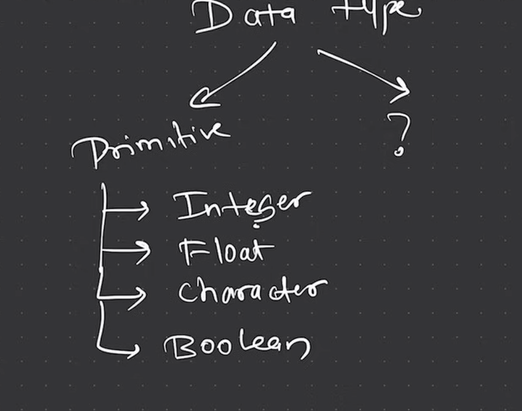 Data type
Primitive
?
Integer
Float
Character
Boolean